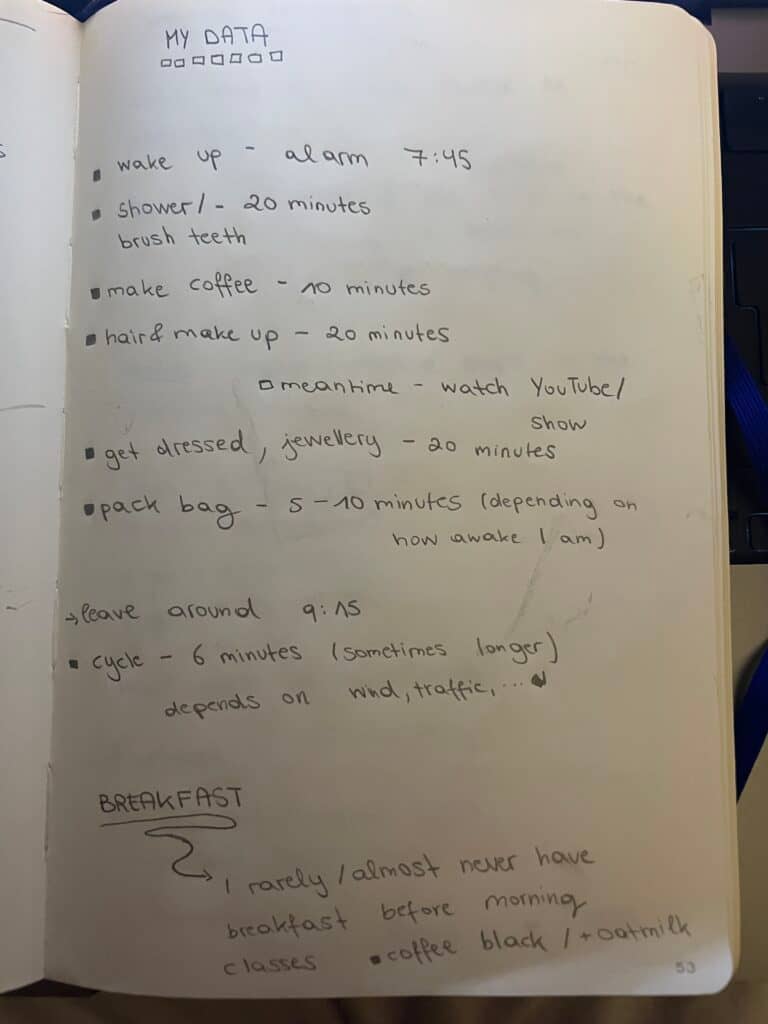 MY DATA
wake up - alarm 7:45
shower/ - 20 minutes
brush teeth
make coffee - 10 minutes
hair & make up - 20 minutes
meantime - watch YouTube/
show
get dressed, jewellery - 20 minutes
pack bag - 5 - 10 minutes (depending on
how awake I am)
→ leave around 9:15
cycle - 6 minutes (sometimes longer)
depends on wind, traffic, ...
BREAKFAST
I rarely / almost never have
breakfast before morning
classes • coffee black / + oatmilk
53